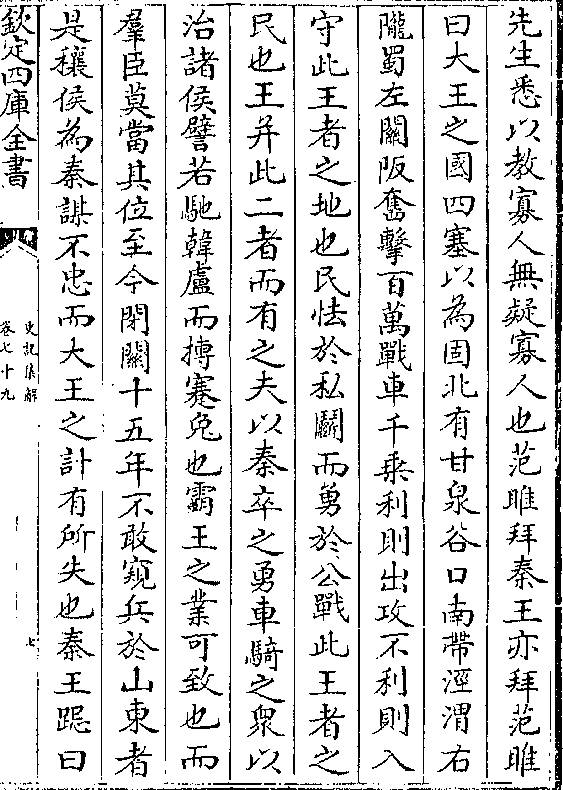 先生悉以教寡人無疑寡人也范雎拜秦王亦拜范雎
曰大王之國四塞以為固北有甘泉谷口南帶涇渭右
隴蜀左關阪奮擊百萬戰車千乗利則出攻不利則入
守此王者之地也民怯於私鬭而勇於公戰此王者之
民也王并此二者而有之夫以秦卒之勇車騎之衆以
治諸侯譬若馳韓盧而搏蹇兔也霸王之業可致也而
羣臣莫當其位至今閉關十五年不敢窺兵於山東者
是穰侯為秦謀不忠而大王之計有所失也秦王跽曰
欽定四庫全書
史記集解
卷七十九
七